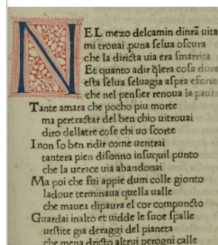 NEL mezo delcamin dinrā uita
mi trouai puna selua oscura
che la diricta uia era smarrita
Et quanto adir q̄lera cosa dura
esta selua seluagia aspra eforte
che nel pensier renoua la paura
Tante amara che pocho piu morte
ma pertractar del ben chio uitrouai
diro dellatre cose chi uo scorte
I non so ben ridir come uentrai
tantera pien disonno insuquil punto
che la uerace uia abandonai
Ma poi che fui appie dum colle gionto
ladoue terminaua quella ualle
che mauea dipaura el cor compuncto
Guardai inalto et uidde le sue spalle
uestite gia deraggi del pianeta
che mena dricto altrui perogni calle